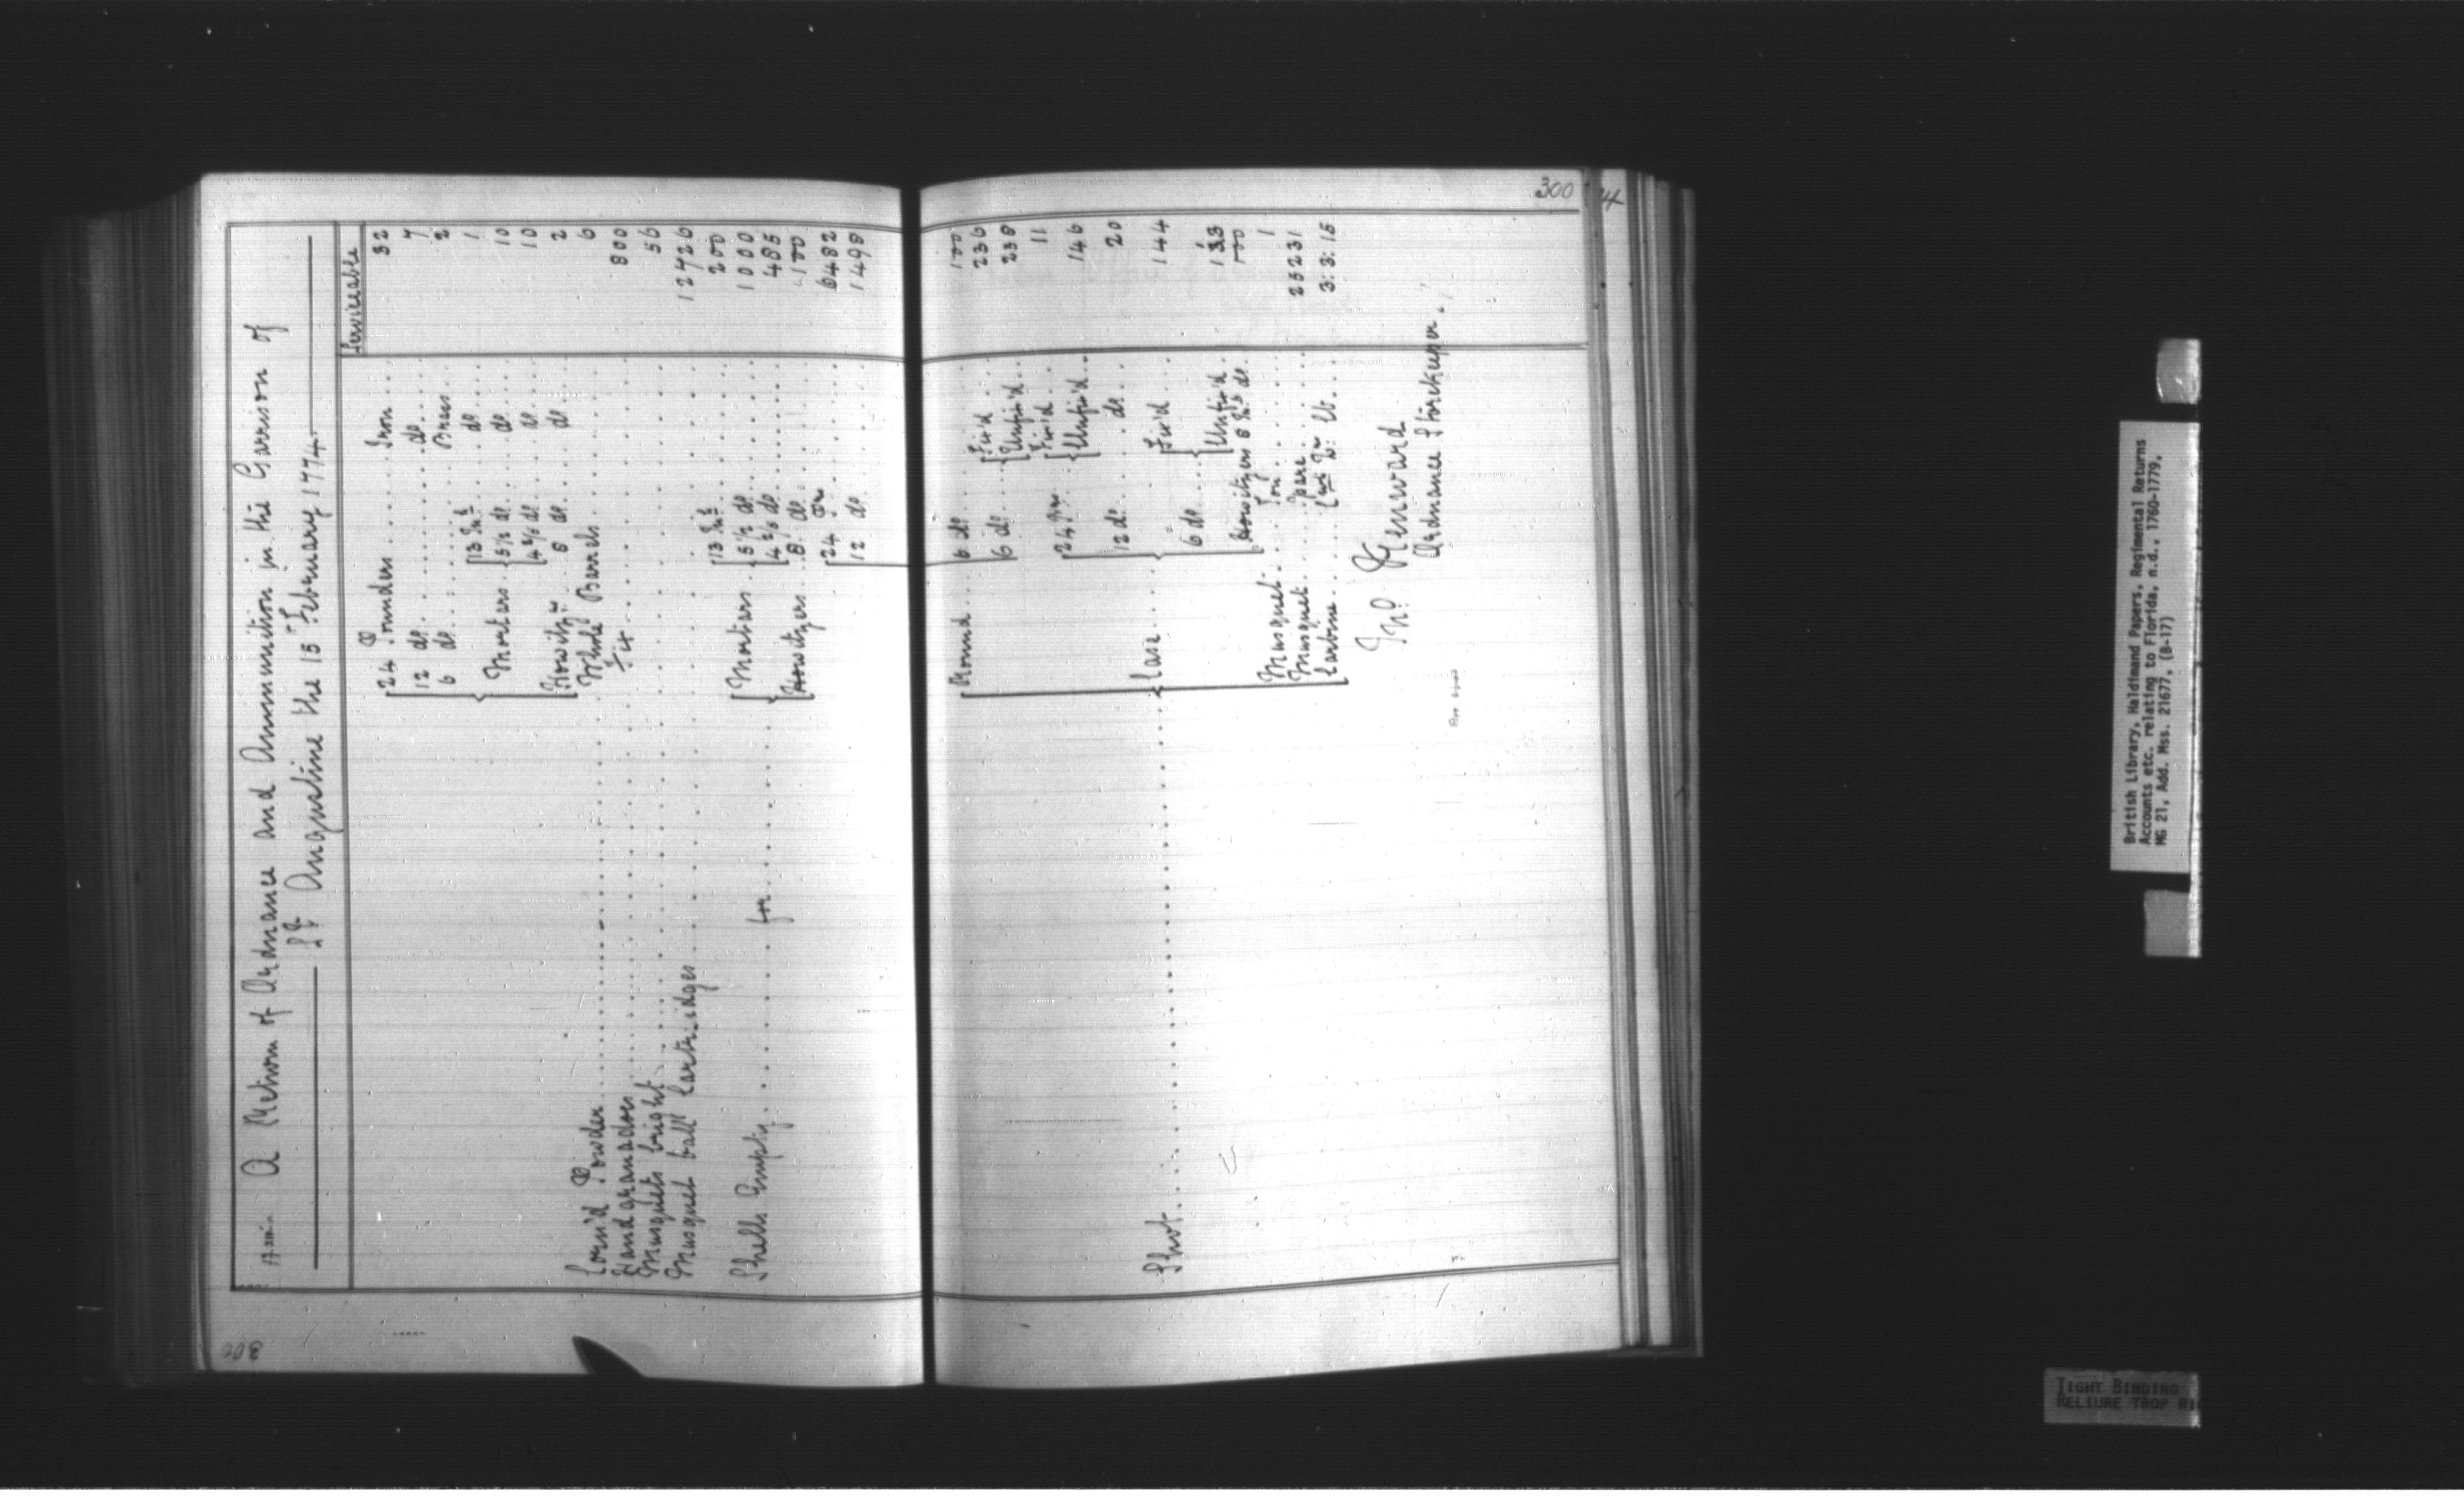 A Return of Ordnance and Ammunition in the Garrison of
St Augustine the 15 February 1774
Serviceable
24 Pounders Iron 32
12 do do 7
6 do Brass 2
Mortars 13 Inch do 1
5 1/2 do do 10
4 2/5 do do 10
Howitzrs 8 do do 2
Corn'd Powder Whole Barrels 6
Handgranadoes Fix 800
Musquets bright 56
Musquet ball Cartridges 12726
Shells Empty for Mortars 13 Inch 200
5 1/2 do 1000
4 2/5 do 485
Howitzers 8 do 100
24 Pr 6482
12 do 1498
300
Shot Round 6 do 100
6 do Fix'd 236
Unfix'd 238
Case 24 Pr Fix'd 11
Unfix'd 146
12 do do 20
6 do Fix'd 144
Unfix'd 133
Howitzers 8 In. do 100
Musquet Ton 1
Musquet 25231
Carbine Cwt Qr lb 3:3:15
Jno Kenward
Ordnance Storekeeper
British Library, Haldimand Papers, Regimental Returns
Accounts etc. relating to Florida, n.d., 1760-1779.
MG 21, Add. Mss. 21677, (B-17)
TIGHT BINDING
RELIURE TROP RI